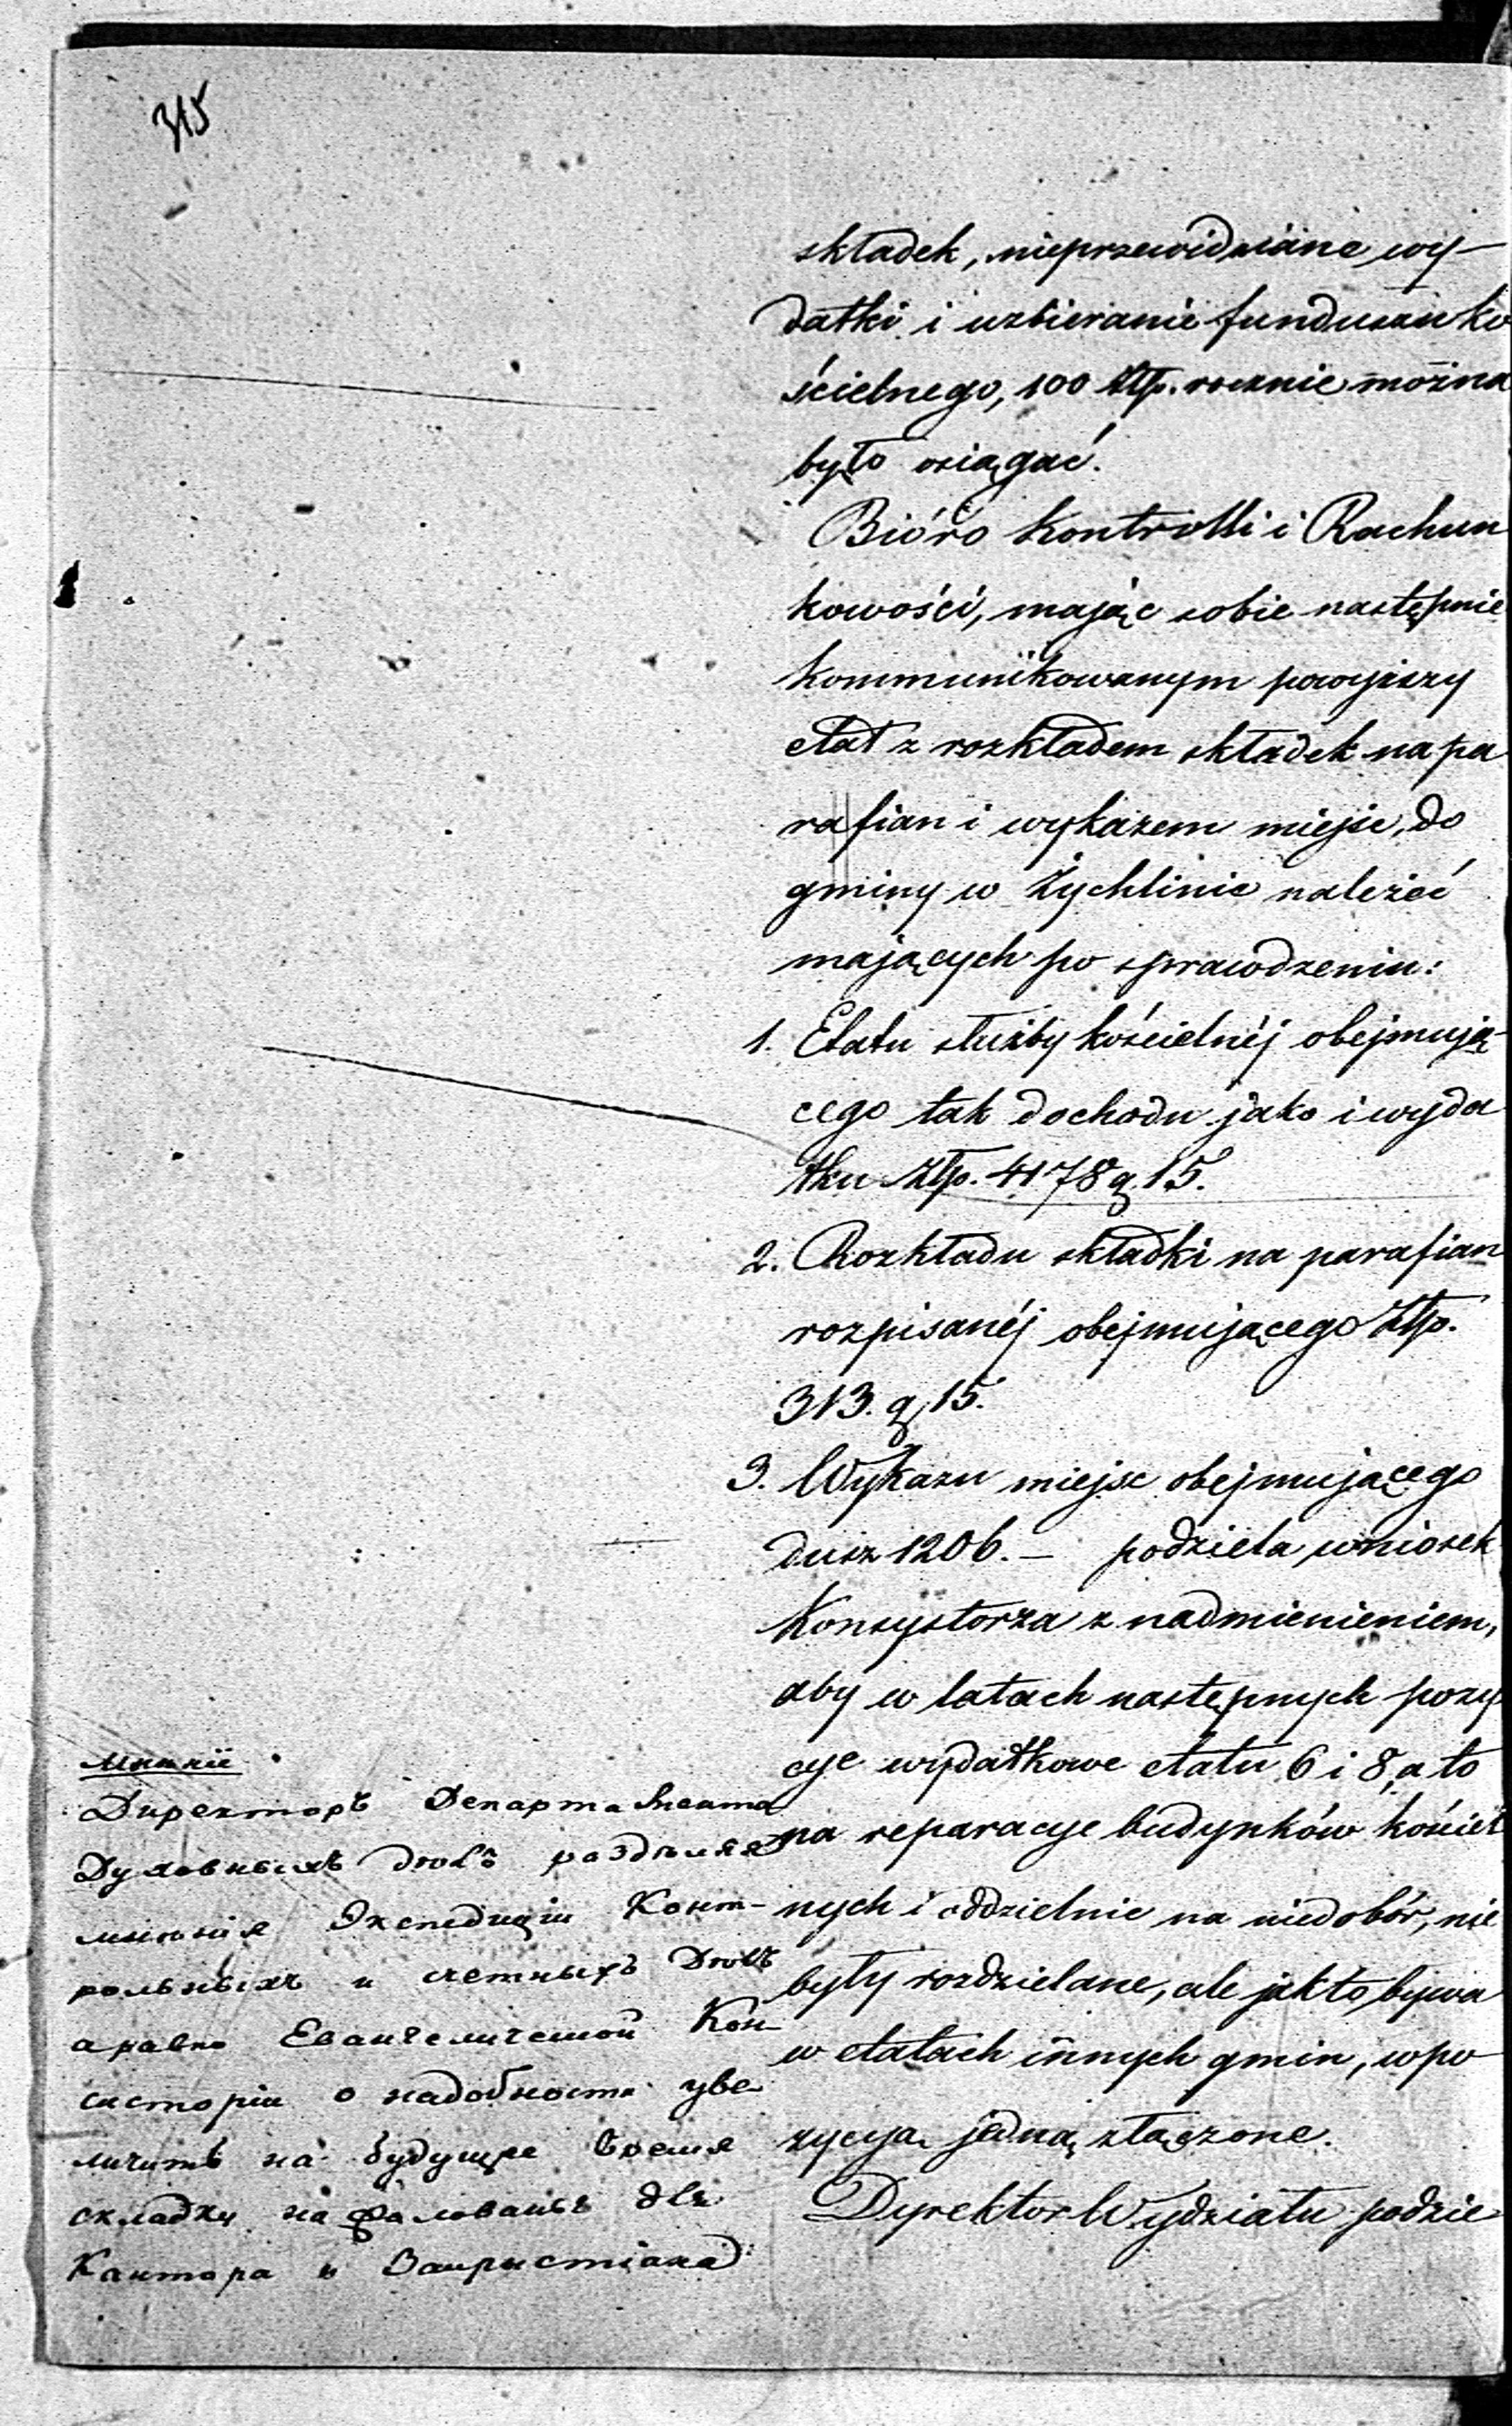 315
składek, nieprzewidziane wy-
datki i uzbieranie funduszu ko
ścielnego, 100 Złp. rocznie można
było osiągać.
Bióro Kontrolli i Rachun
kowości, mając sobie następnie
kommunikowanym powyższy
etat z rozkładem składek na pa
rafian i wykazem miejsc, do
gminy w Żychlinie należeć
mających po sprawdzeniu:
1. Etatu służby kościelnéj obejmują-
cego tak dochodu jako i wyda
tku Złp. 4178 g. 15.
2. Rozkładu składki na parafian
rozpisanéj obejmującego Złp.
313. g. 15.
3. Wykazu miejsc obejmującego
dusz 1206. – podziela wniosek
Konsystorza z nadmienieniem,
aby w latach następnych pozy
cye wydatkowe etatu 6 i 8, a to
na reparacye budynków kościel
nych i oddzielnie na niedobór, nie
były rozdzielane, ale jak to bywa
w etatach innych gmin, w po
zycyą jedną złączone.
Dyrektor Wydziału podzie
Мнѣніе
Директоръ Департамента
Духовныхъ Дѣлъ раздѣляя
мнѣнія Экспедиціи Конт-
рольныхъ и счетныхъ Дѣлъ
а равно Евангелической Кон-
систоріи о надобности уве
личить на будущее время
складки на жалованье для
Кантора и Закристіана